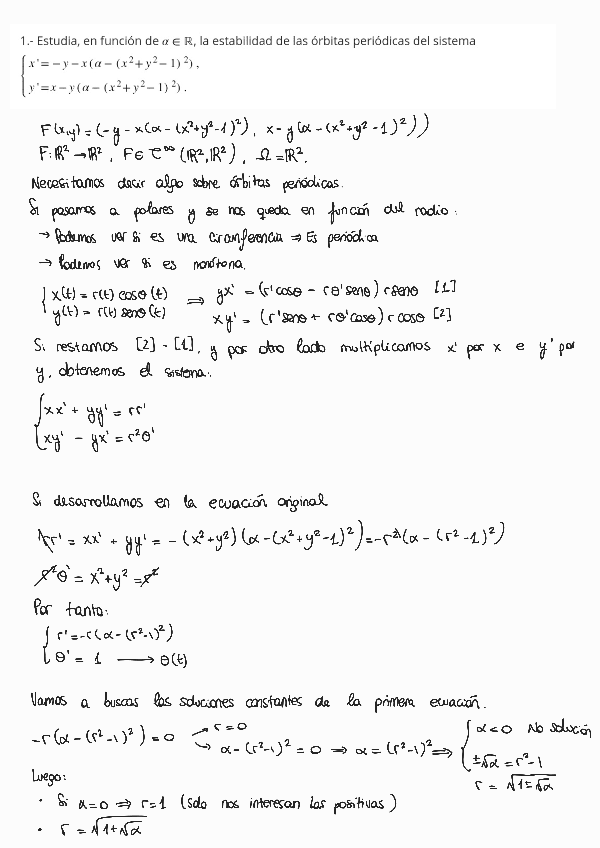 1.- Estudia, en función de α ∈ ℝ, la estabilidad de las órbitas periódicas del sistema
{ x' = −y − x(α − (x² + y² − 1)²),
y' = x − y(α − (x² + y² − 1)²).
F(x,y) = (−y − x(α − (x²+y²−1)²), x − y(α − (x²+y²−1)²))
F: ℝ² → ℝ², F ∈ C^∞(ℝ², ℝ²), Ω = ℝ².
Necesitamos decir algo sobre órbitas periódicas.
Si pasamos a polares y se nos queda en función del radio:
→ Podemos ver si es una circunferencia ⇒ Es periódica
→ Podemos ver si es monótona.
{ x(t) = r(t) cosθ(t) ⇒ yx' = (r'cosθ − rθ'senθ) r senθ [1]
y(t) = r(t) senθ(t) xy' = (r'senθ + rθ'cosθ) r cosθ [2]
Si restamos [2] - [1], y por otro lado multiplicamos x' por x e y' por
y, obtenemos el sistema:
{ xx' + yy' = rr'
xy' − yx' = r²θ'
Si desarrollamos en la ecuación original
rr' = xx' + yy' = −(x²+y²)(α−(x²+y²−1)²) = −r²(α − (r²−1)²)
r²θ' = x²+y² = r²
Por tanto:
{ r' = −r(α − (r²−1)²)
θ' = 1 ⟶ θ(t)
Vamos a buscas las soluciones constantes de la primera ecuación.
−r(α − (r²−1)²) = 0 → r = 0
→ α − (r²−1)² = 0 ⇒ α = (r²−1)² ⇒ { α < 0 No solución
±√α = r²−1
r = √(1±√α)
Luego:
• Si α = 0 ⇒ r = 1 (solo nos interesan las positivas)
• r = √(1+√α)